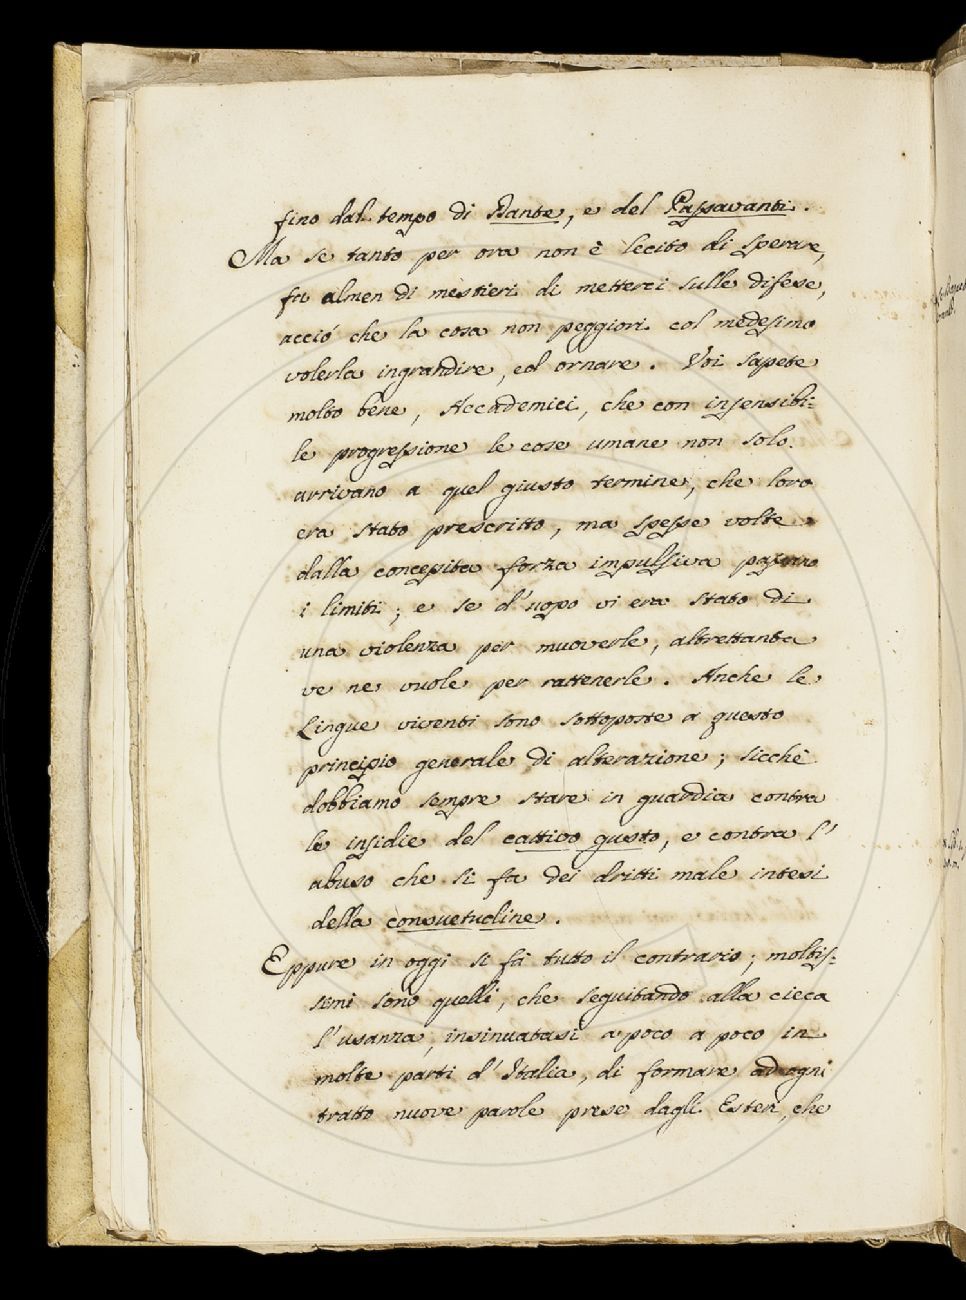 fino dal tempo di Dante, e del Passavanti.
Ma se tanto per ora non è lecito di sperare,
fa almen di mestieri di metterci sulle difese,
acciò che la cosa non peggiori col medesimo
volerla ingrandire, ed ornare. Voi sapete
molto bene, Accademici, che con insensibi=
le progressione le cose umane non solo
arrivano a quel giusto termine, che loro
era stato prescritto, ma spesse volte
dalla concepita forza impulsiva passano
i limiti; e se d'uopo vi era stato di
una violenza per muoverle, altrettanta
ve ne vuole per rattenerle. Anche le
Lingue viventi sono sottoposte a questo
principio generale di alterazione; sicchè
dobbiamo sempre stare in guardia contra
le insidie del cattivo gusto, e contra l'
abuso che si fa dei dritti male intesi
della consuetudine.
Eppure in oggi si fà tutto il contrario; moltis=
simi sono quelli, che seguitando alla cieca
l'usanza, insinuatasi a poco a poco in
molte parti d'Italia, di formare ad ogni
tratto nuove parole prese dagli Esteri, che